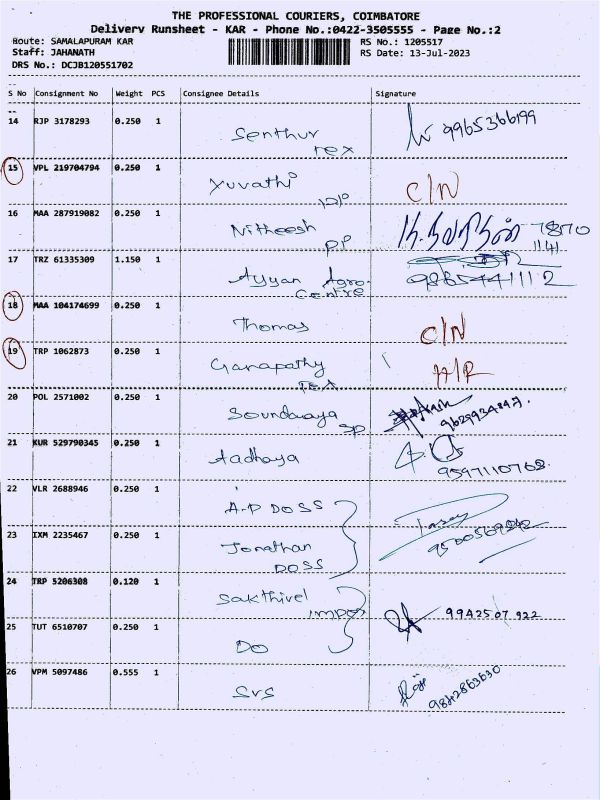 THE PROFESSIONAL COURIERS, COIMBATORE
Delivery Runsheet - KAR - Phone No.:0422-3505555 - Page No.:2
Route: SAMALAPURAM KAR RS No.: 1205517
Staff: JAHANATH RS Date: 13-Jul-2023
DRS No.: DCJB120551702
S No Consignment No Weight PCS Consignee Details Signature
14 RJP 3178293 0.250 1 Senthur 9965366199
Tex
15 VPL 219704794 0.250 1 Yuvathi C/N
16 MAA 287919082 0.250 1 Nitheesh 7870
PP 1141
17 TRZ 61335309 1.150 1 Ayyan Agro 9865441112
Centre
18 MAA 104174699 0.250 1 Thomas C/N
19 TRP 1062873 0.250 1 Ganapathy H/R
Tex
20 POL 2571002 0.250 1
SP
21 KUR 529790345 0.250 1 Aadhaya 9597110768
22 VLR 2688946 0.250 1 A.P DOSS
23 IXM 2235467 0.250 1 Jonathan
DOSS
24 TRP 5206308 0.120 1 Sakthivel 9942507922
25 TUT 6510707 0.250 1 Do
26 VPM 5097486 0.555 1 SVS 9842863630